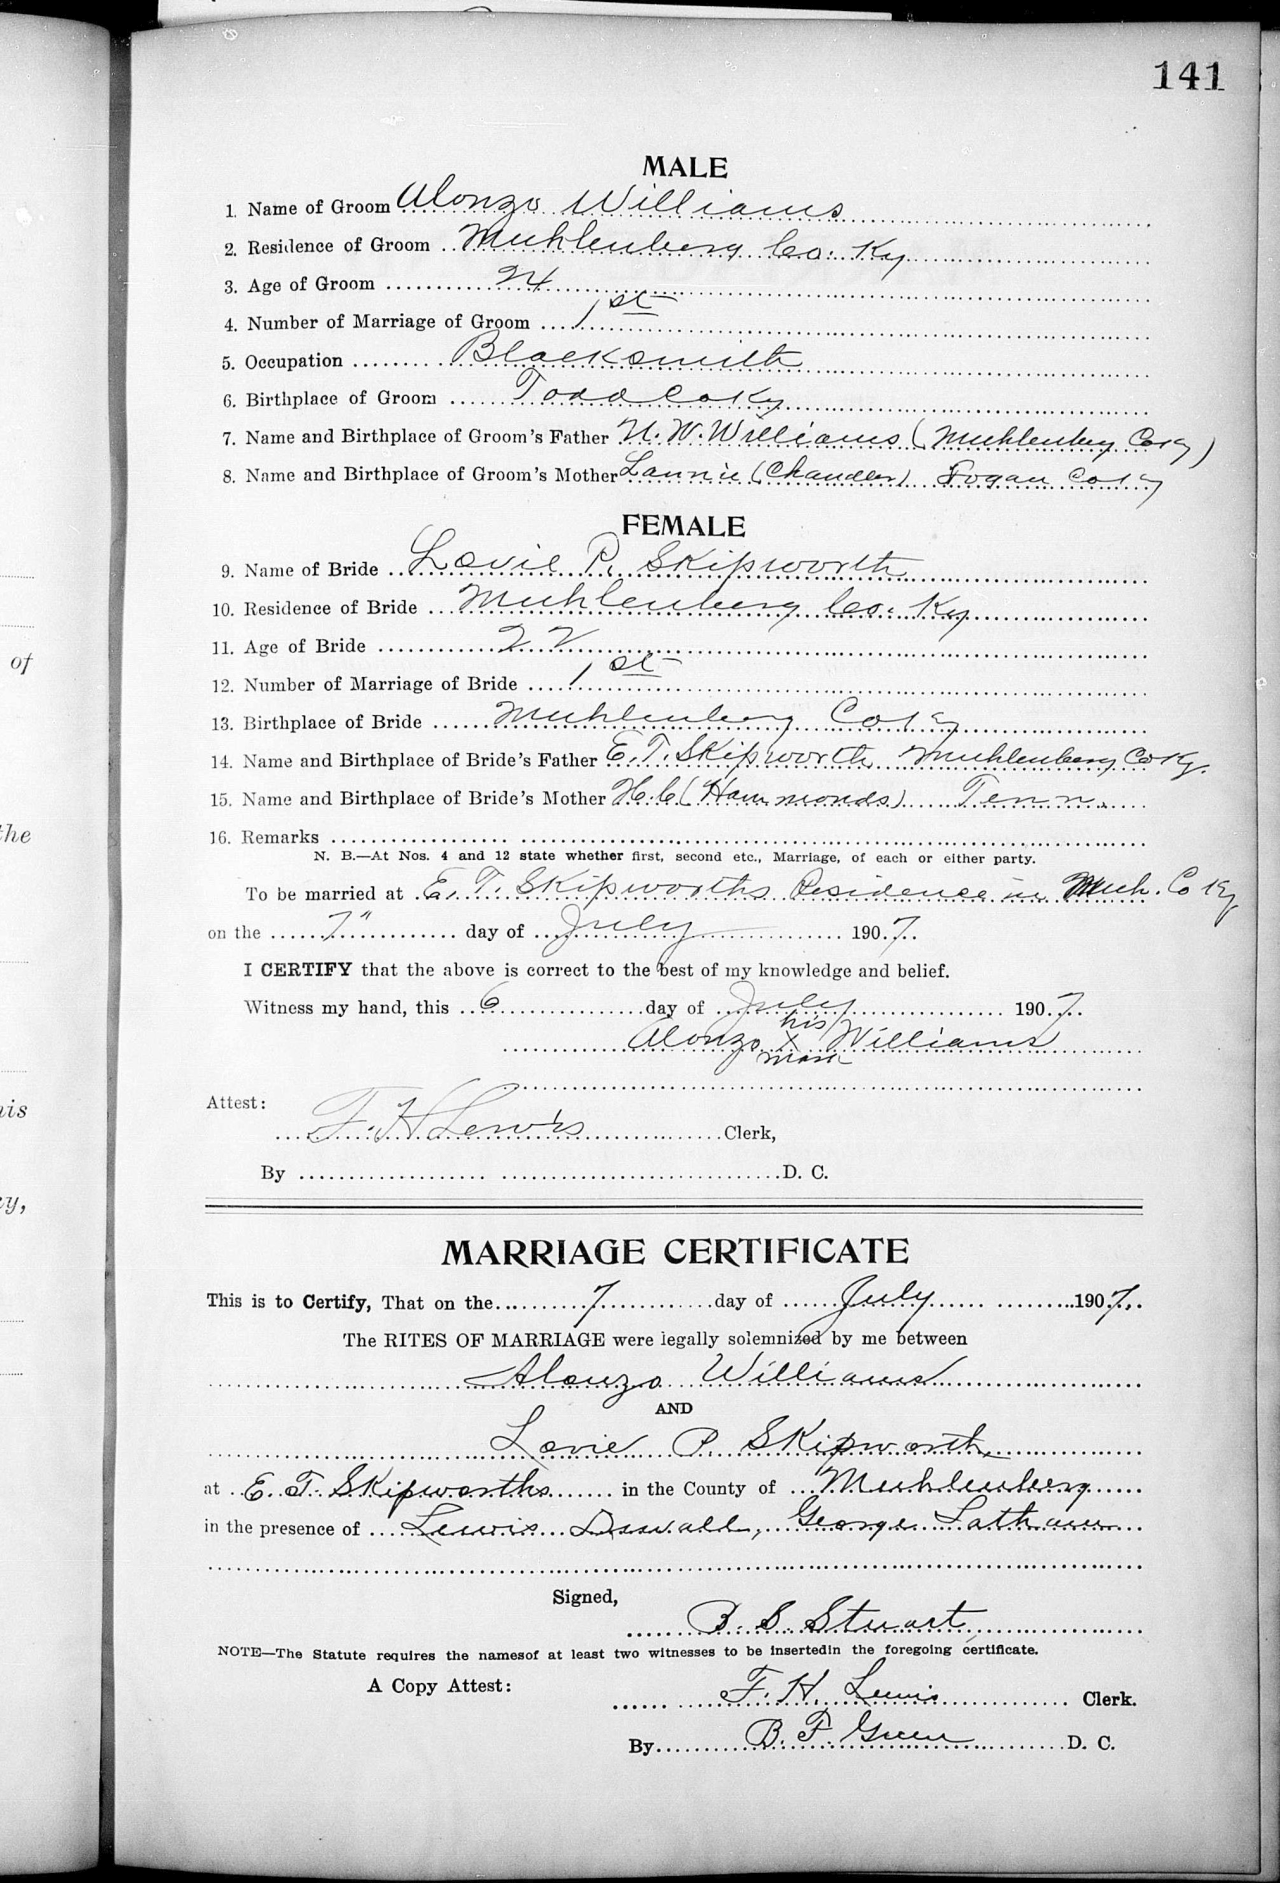 141
MALE
1. Name of Groom Alonzo Williams
2. Residence of Groom Muhlenberg Co. Ky
3. Age of Groom 24
4. Number of Marriage of Groom 1st
5. Occupation Blacksmith
6. Birthplace of Groom Todd Co Ky
7. Name and Birthplace of Groom's Father W. Williams (Muhlenberg Co Ky)
8. Name and Birthplace of Groom's Mother (Chandler) Logan Co Ky
FEMALE
9. Name of Bride Lovie P. Skipworth
10. Residence of Bride Muhlenberg Co. Ky
11. Age of Bride 22
12. Number of Marriage of Bride 1st
13. Birthplace of Bride Muhlenberg Co Ky
14. Name and Birthplace of Bride's Father E. T. Skipworth Muhlenberg Co Ky.
15. Name and Birthplace of Bride's Mother H. C. (Hammonds) Tenn.
16. Remarks
N. B.—At Nos. 4 and 12 state whether first, second etc., Marriage, of each or either party.
To be married at E. T. Skipworths Residence in Muh. Co Ky
on the 7" day of July 1907
I CERTIFY that the above is correct to the best of my knowledge and belief.
Witness my hand, this 6 day of July 1907
his
Alonzo X Williams
mark
Attest:
F. H. Lewis Clerk,
By D. C.
MARRIAGE CERTIFICATE
This is to Certify, That on the 7 day of July 1907.
The RITES OF MARRIAGE were legally solemnized by me between
Alonzo Williams
AND
Lovie P. Skipworth
at E. T. Skipworths in the County of Muhlenberg
in the presence of Lewis Duvall, George Latham
Signed,
B. S. Stuart
NOTE—The Statute requires the namesof at least two witnesses to be insertedin the foregoing certificate.
A Copy Attest:
F. H. Lewis Clerk.
By B. F. Green D. C.
of
the
his
ry,